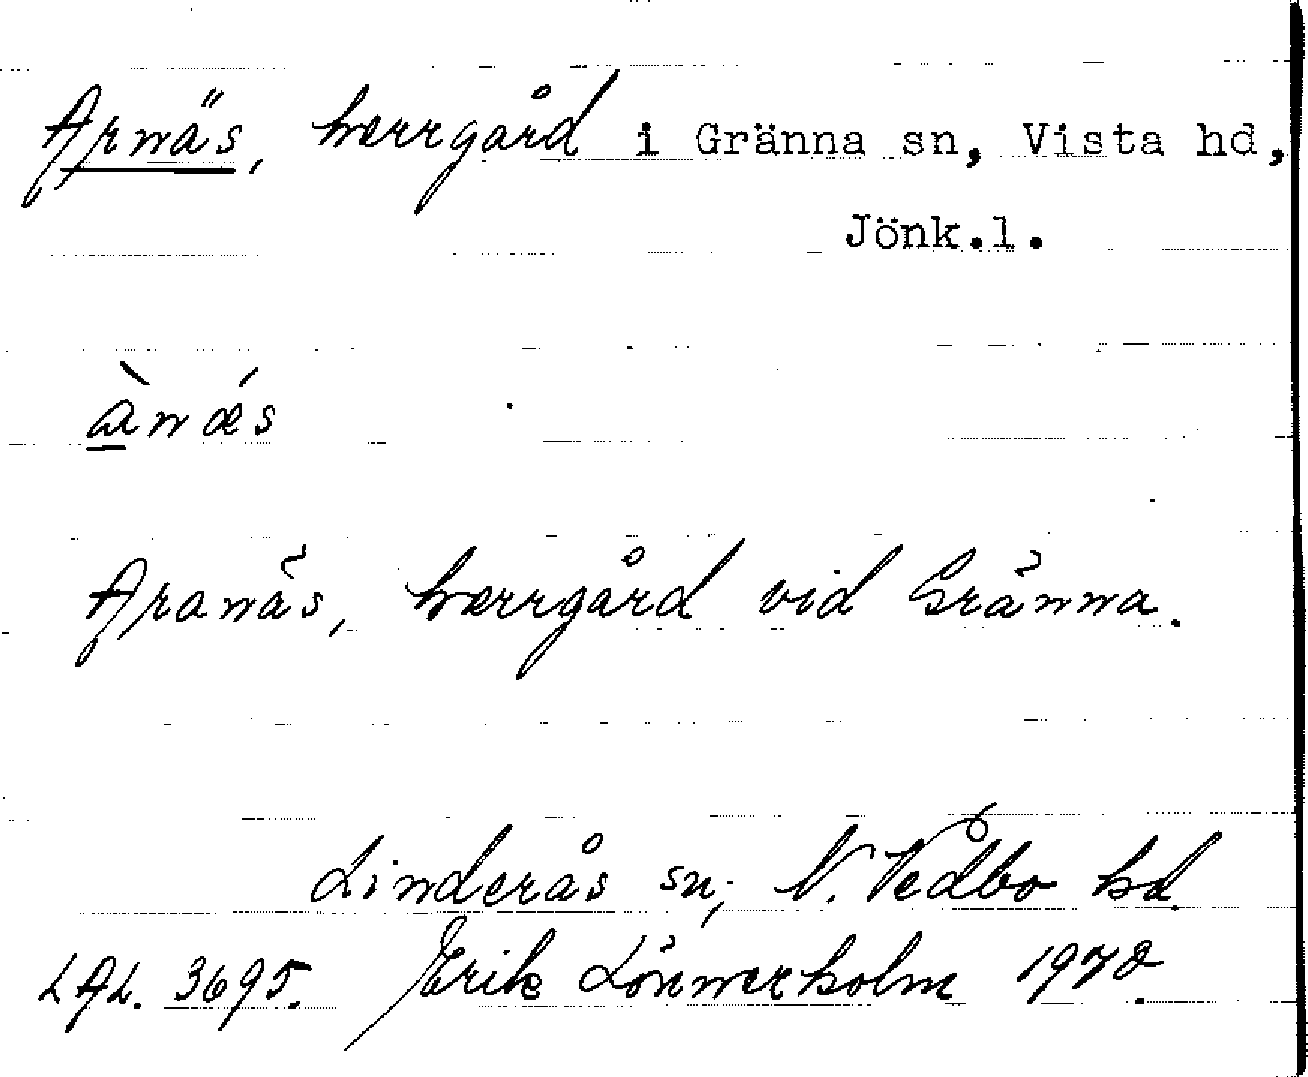 Arnäs, herrgård i Gränna sn, Vista hd,
Jönk.l.
ànǽs
Aranäs, herrgård vid Gränna.
Linderås sn, N. Vedbo hd.
LAL. 3695. Erik Lönnerholm 1970.